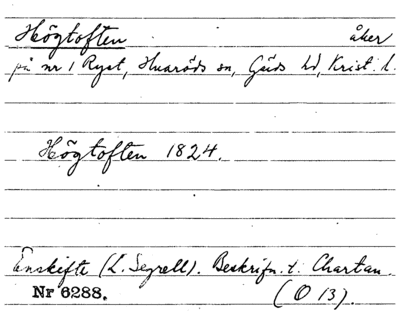 Högtoften åker
på nr 1 Ryet, Huaröds sn, Gärds hd, Krist. l.
Högtoften 1824.
Enskifte (L. Segrell). Beskrifn. t. Chartan.
Nr 6288. (O 13).